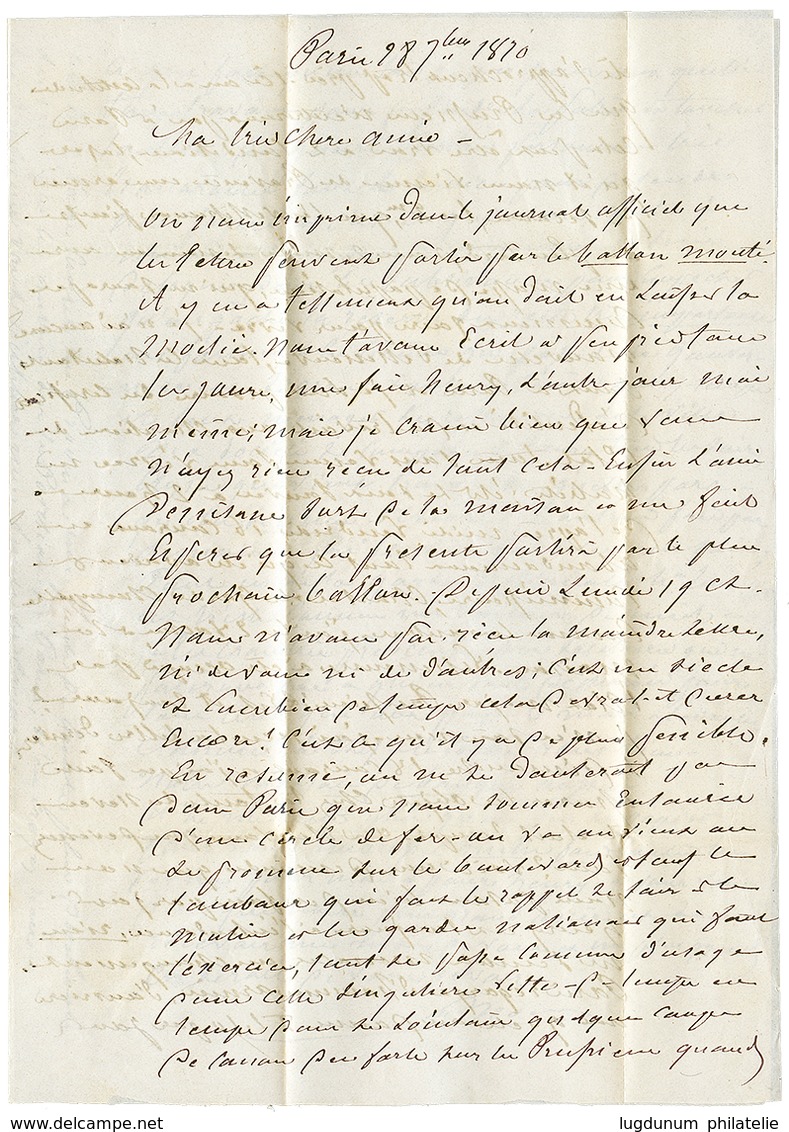 Paris 28 7bre 1870
Ma très chère amie -
On nous imprime dans le journal officiel que
les lettres peuvent partir par le ballon monté.
il y en a tellement qu'on doit en laisser la
moitié. Nous t'avons écrit à peu près tous
les jours, une fois Henry, l'autre jour moi
même; mais je crains bien que vous
n'ayez rien reçu de tout cela - Enfin l'ami
part de la maison et me fait
espérer que la présente partira par le plus
prochain ballon. Depuis Lundi 19 ct.
Nous n'avons pas reçu la moindre lettre,
ni de vous ni de d'autres; c'est un siècle
et combien de temps cela devrat-il durer
encore! C'est ce qu'il y a de plus pénible.
En résumé, on ne se douterait pas
dans Paris que nous sommes entourés
d'un cercle de fer - on va on vient on
se promène sur le boulevard, et sauf le
tambour qui fait le rappel le soir et le
matin et les gardes nationaux qui font
l'exercice, tout se passe comme d'usage
dans cette singulière ville - De temps en
temps dans le lointain quelques coups
de canon peu forts sur les Prussiens quand
delcampe.net
lugdunum philatelie